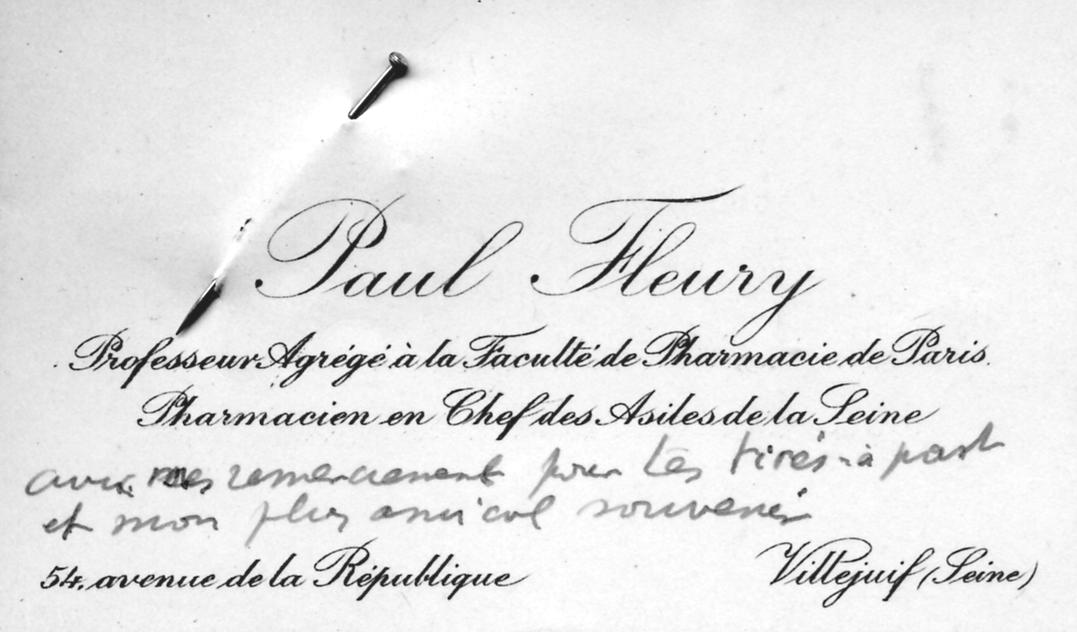 Paul Fleury
Professeur Agrégé à la Faculté de Pharmacie de Paris.
Pharmacien en Chef des Asiles de la Seine
avec mes remerciement pour tes tirés-à part
et mon plus amical souvenir
54, avenue de la République
Villejuif (Seine)